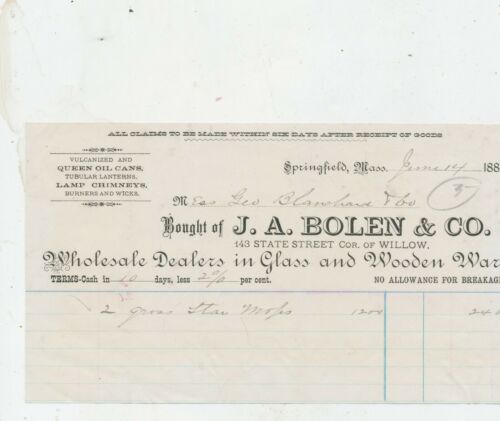 ALL CLAIMS TO BE MADE WITHIN SIX DAYS AFTER RECEIPT OF GOODS
VULCANIZED AND
QUEEN OIL CANS,
TUBULAR LANTERNS,
LAMP CHIMNEYS,
BURNERS AND WICKS.
Springfield, Mass. June 14 188
M ess Geo Blanchard & Co
Bought of J. A. BOLEN & CO.
143 STATE STREET COR. OF WILLOW,
Wholesale Dealers in Glass and Wooden War
TERMS-Cash in 10 days, less 2% per cent. NO ALLOWANCE FOR BREAKAG
2 gross Star Mops 1200 240